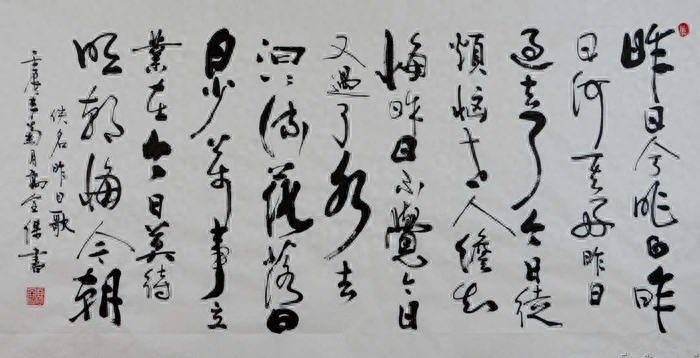 昨日兮昨日昨
日何其好昨日
過去了今日徒
煩惱世人知
悔昨日不覺今日
又過了水去
汩汩流花落日
日少萬事立
業在今日莫待
明朝悔今朝
佚名昨日歌
菊月書